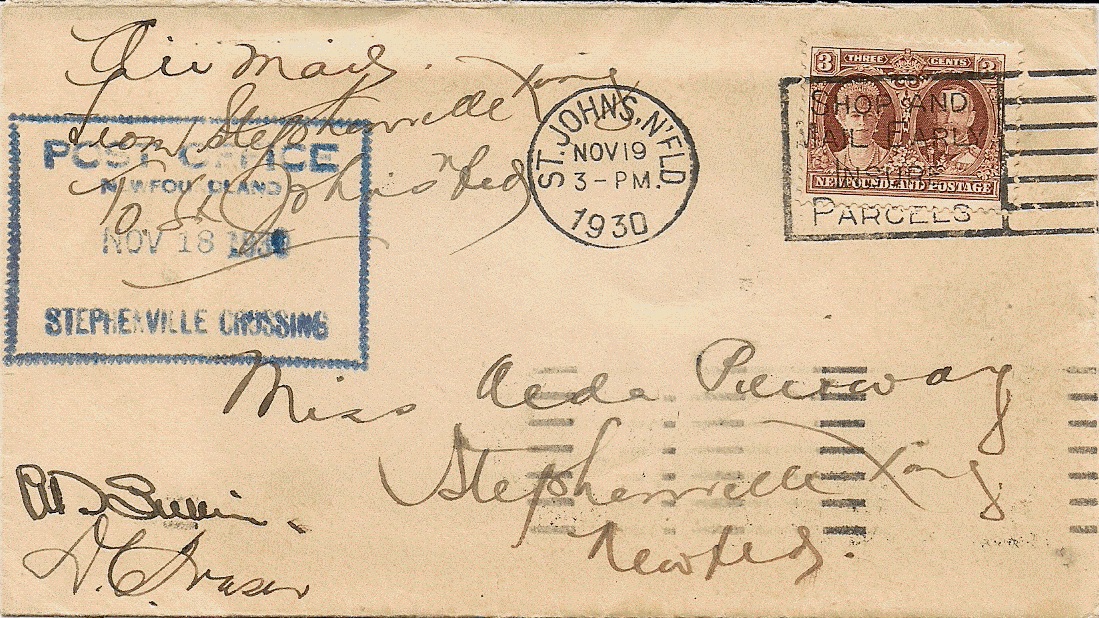 Air Mail.
from Stephenville Xong
To St. John's Nfld
POST OFFICE
NEWFOUNDLAND
NOV 18 1930
STEPHENVILLE CROSSING
ST. JOHN'S, N'FLD
NOV 19
3-PM.
1930
3 THREE CENTS 3
NEWFOUNDLAND POSTAGE
SHOP AND
MAIL EARLY
INSURE
PARCELS
Miss
Stephenville Xong
Newfld.
D.C. Fraser